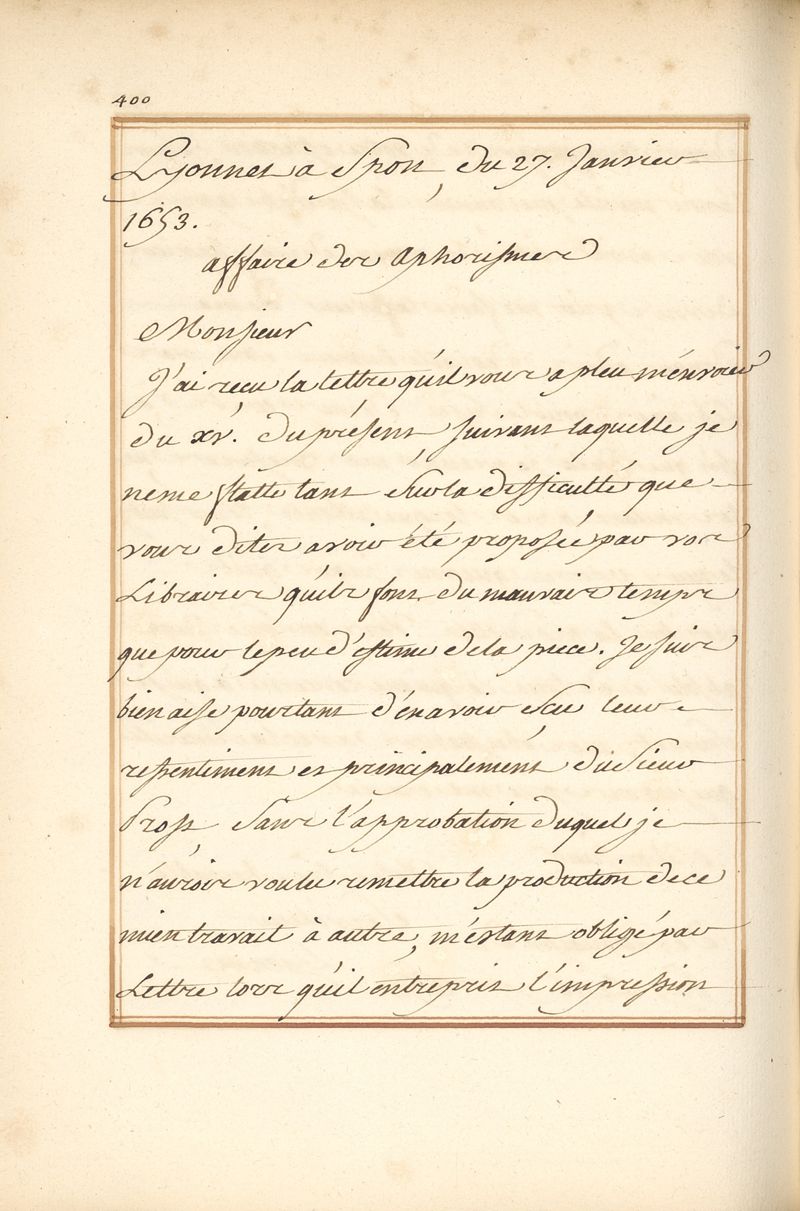 400
Lyonnet à Spon, du 27. Janvier
1653.
affaire des Aphorismes
Monsieur
J'ai reçu la lettre qu'il vous a pleu m'envoier
du xv. du présent, suivant laquelle je
ne me flatte tant sur la difficulté que
vous dites avoir été proposée par vos
Libraires qu'ils font du mauvais temps
que pour le peu d'estime de la piece. Je suis
bien aise pourtant d'en avoir sceu leur
ressentiment et principalement du Sieur
Prost, sans l'approbation duquel je
n'aurois voulu remettre la production de ce
mien travail à autre, m'estant obligé par
Lettre lors qu'il entreprit l'impression